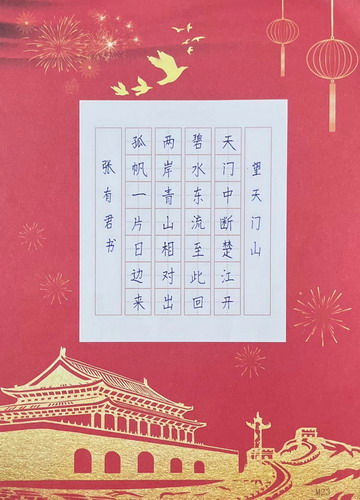 望天门山
天门中断楚江开
碧水东流至此回
两岸青山相对出
孤帆一片日边来
张有君书
M23